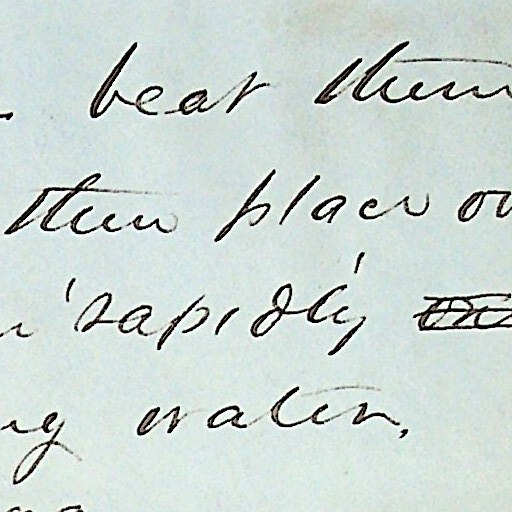 beat them
then place ov
'rapidly'
ng water,